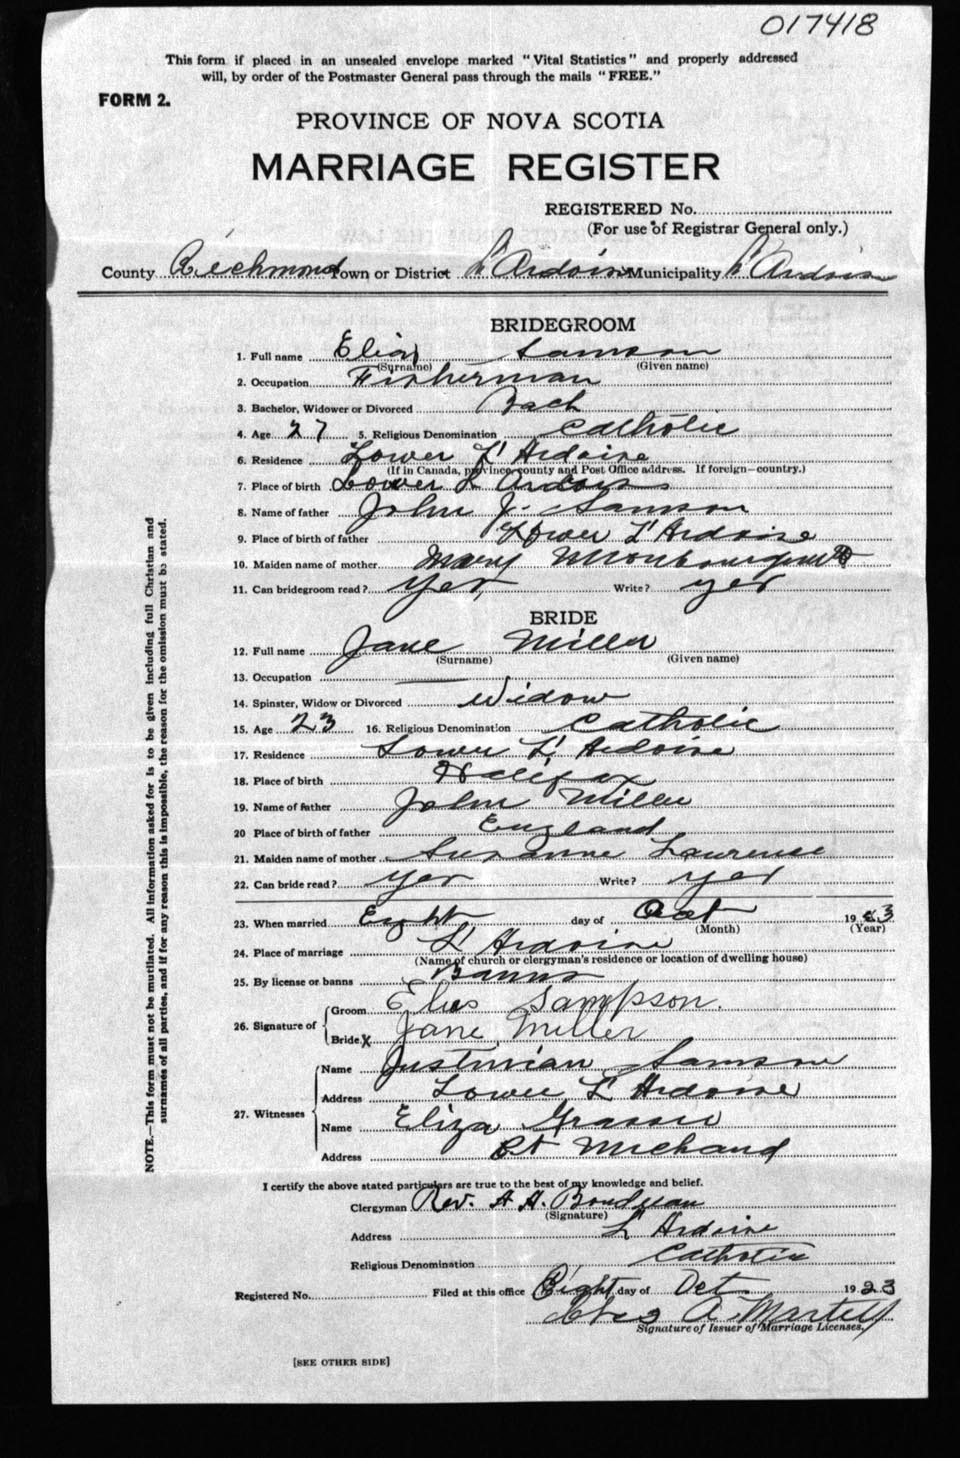 017418
This form if placed in an unsealed envelope marked "Vital Statistics" and properly addressed
will, by order of the Postmaster General pass through the mails "FREE."
FORM 2.
PROVINCE OF NOVA SCOTIA
MARRIAGE REGISTER
REGISTERED No.
(For use of Registrar General only.)
County Richmond Town or District L'Ardoise Municipality L'Ardoise
BRIDEGROOM
1. Full name Elias Samson
(Surname) (Given name)
2. Occupation Fisherman
3. Bachelor, Widower or Divorced Bach
4. Age 27 5. Religious Denomination Catholic
6. Residence Lower L'Ardoise
(If in Canada, province, county and Post Office address. If foreign—country.)
7. Place of birth Lower L'Ardoise
8. Name of father John J. Samson
9. Place of birth of father Lower L'Ardoise
10. Maiden name of mother Mary
11. Can bridegroom read? Yes Write? yes
BRIDE
12. Full name Jane Miller
(Surname) (Given name)
13. Occupation
14. Spinster, Widow or Divorced Widow
15. Age 23 16. Religious Denomination Catholic
17. Residence Lower L'Ardoise
18. Place of birth Halifax
19. Name of father John Miller
20 Place of birth of father England
21. Maiden name of mother Suzanne Laurence
22. Can bride read? yes Write? yes
23. When married Eight day of Oct 1923
(Month) (Year)
24. Place of marriage L'Ardoise
(Name of church or clergyman's residence or location of dwelling house)
25. By license or banns Banns
26. Signature of Groom Elias Sampson.
Bride X Jane Miller
27. Witnesses
Name Justinian Samson
Address Lower L'Ardoise
Name Eliza
Address Pt Michaud
I certify the above stated particulars are true to the best of my knowledge and belief.
Clergyman Rev. A H. Boudreau
(Signature)
Address L'Ardoise
Religious Denomination Catholic
Registered No. Filed at this office Eight day of Oct 1923
Chas A. Martell
Signature of Issuer of Marriage Licenses.
[SEE OTHER SIDE]
NOTE.—This form must not be mutilated. All information asked for is to be given including full Christian and
surnames of all parties, and if for any reason this is impossible, the reason for the omission must be stated.